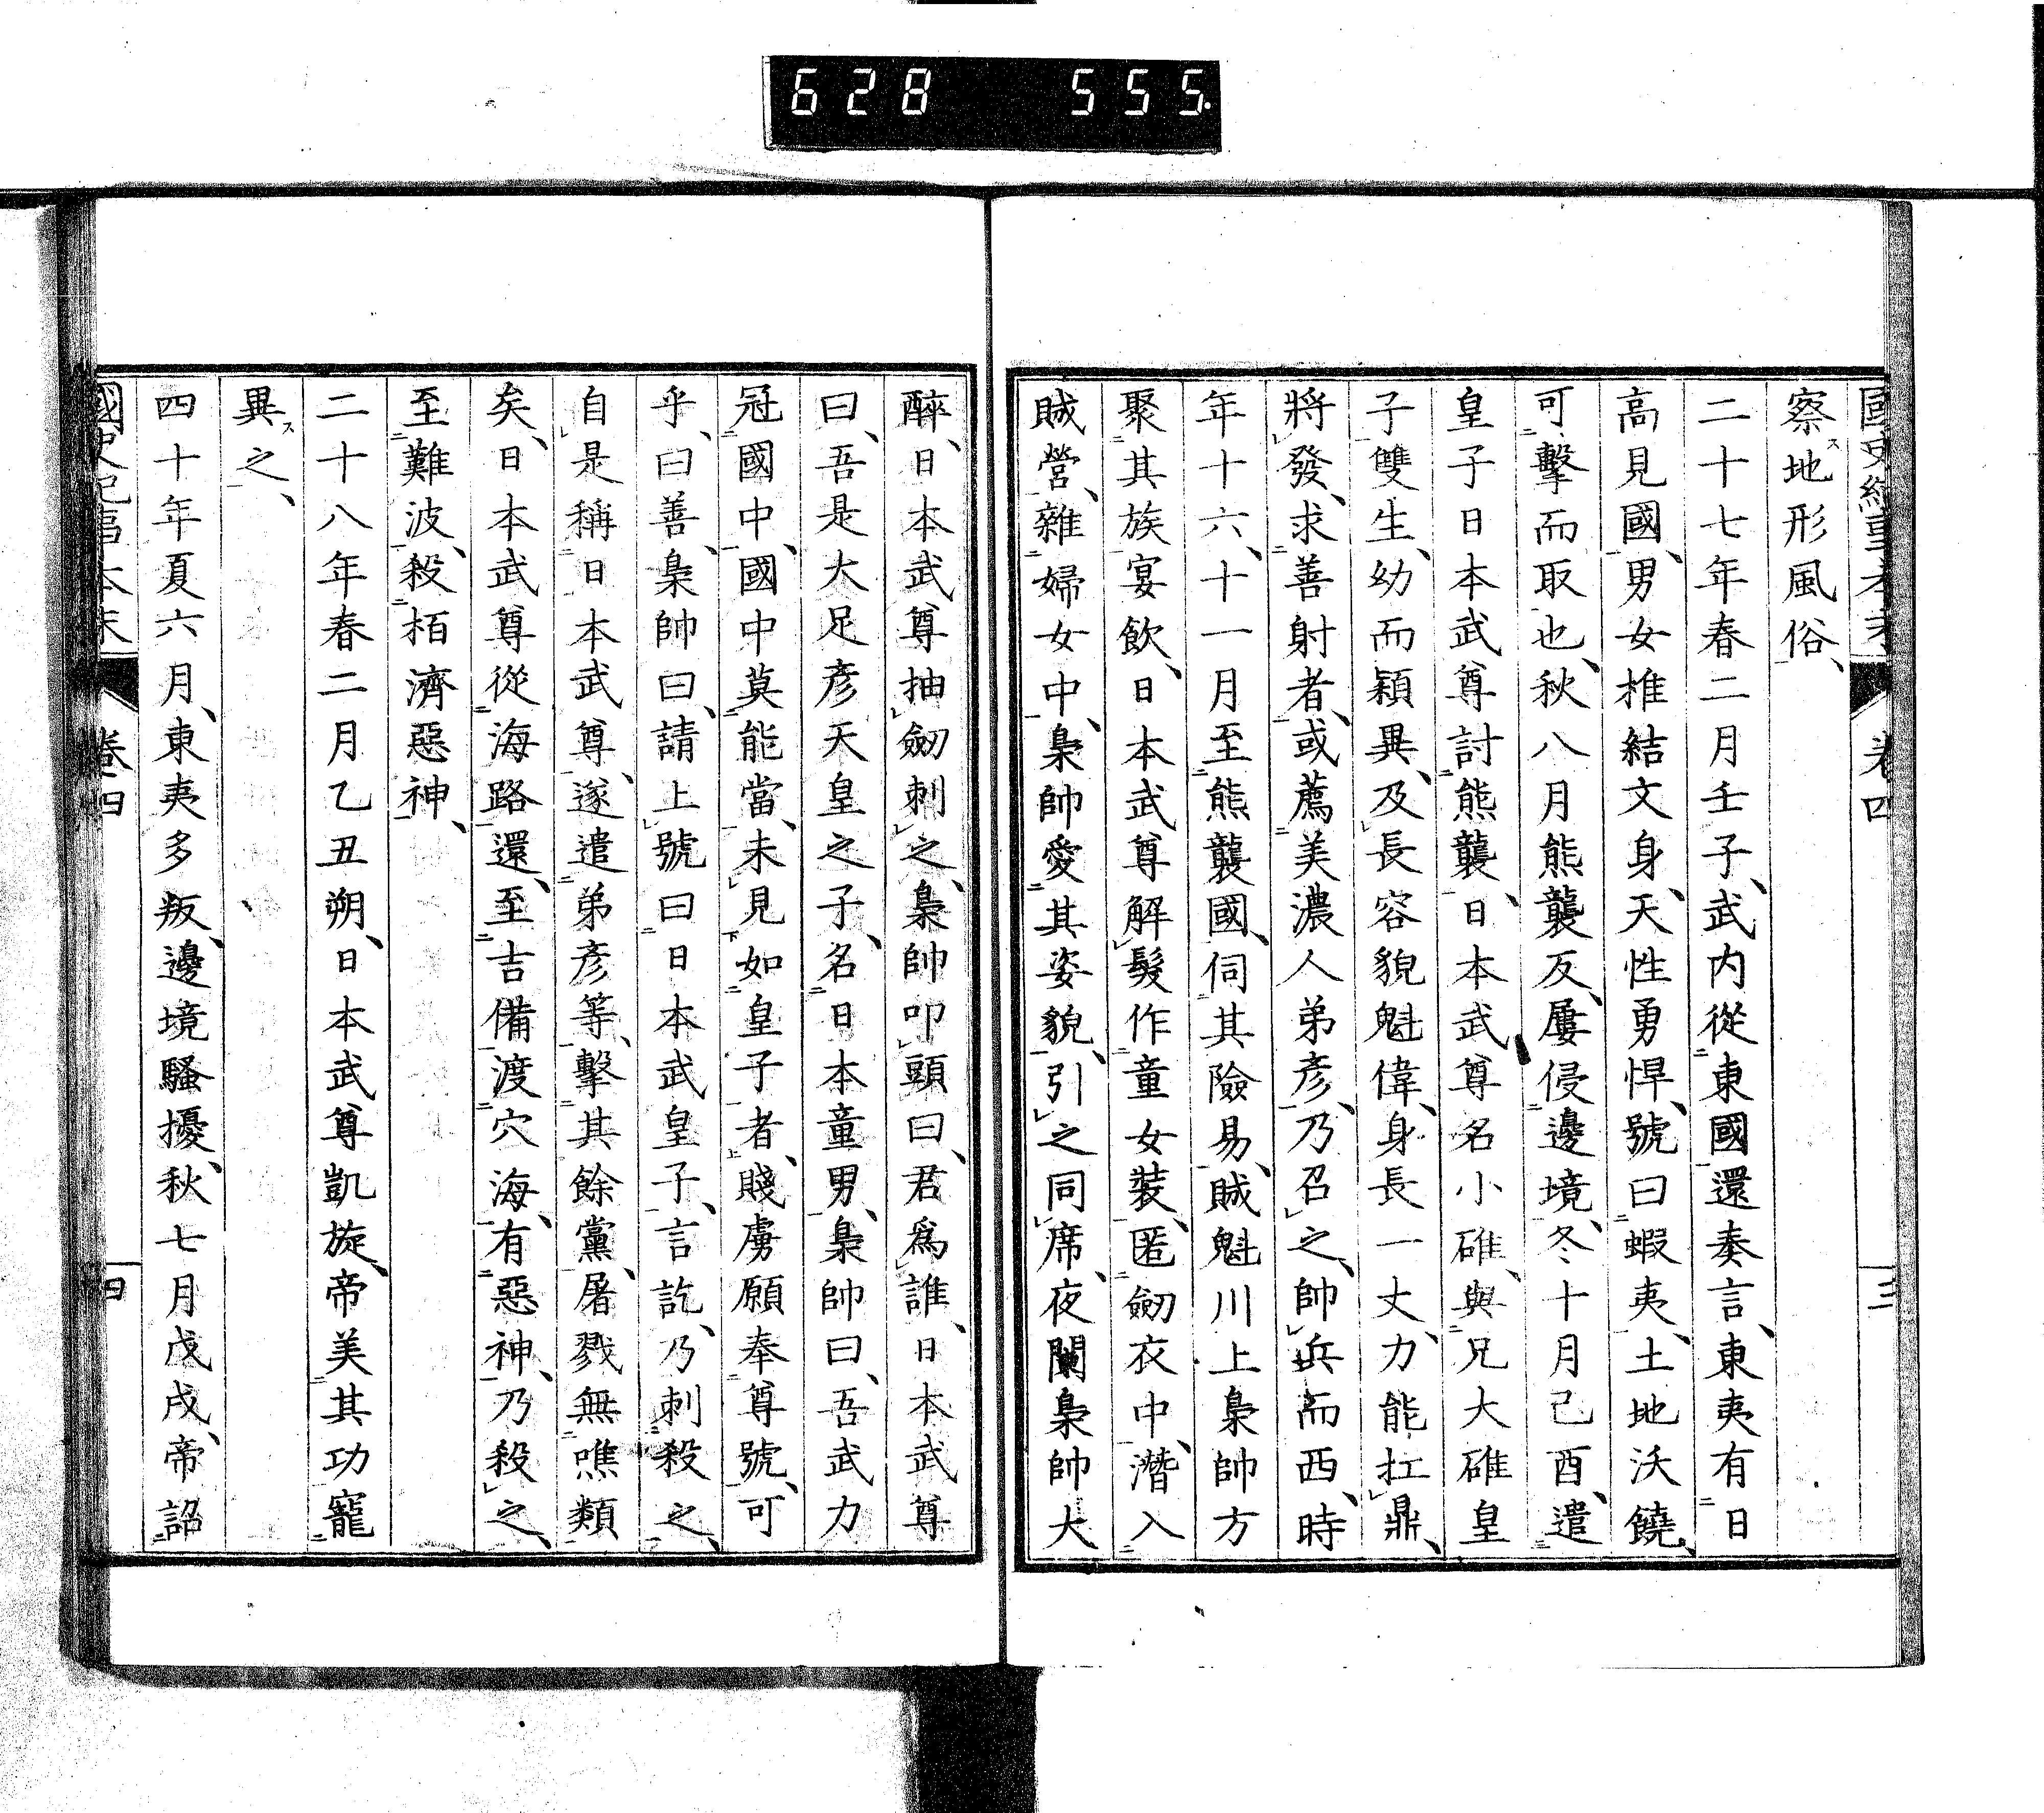 628 555.
卷四
三
察ス地形風俗、
二十七年春二月壬子、武内從東國還奏言、東夷有日
高見國、男女推結文身、天性勇悍、號曰蝦夷、土地沃饒、
可擊而取也、秋八月熊襲反、屢侵邊境、冬十月己酉、遣
皇子日本武尊討熊襲、日本武尊名小碓、與兄大碓皇
子雙生、幼而穎異、及長容貌魁偉、身長一丈、力能扛鼎、
將發、求善射者、或薦美濃人弟彥、乃召之、帥兵而西、時
年十六、十一月至熊襲國、伺其險易、賊魁川上梟帥方
聚其族宴飲、日本武尊解髮作童女裝、匿劒衣中、潛入
賊營、雜婦女中、梟帥愛其姿貌、引之同席、夜闌梟帥大
醉、日本武尊抽劒刺之、梟帥叩頭曰、君爲誰、日本武尊
曰、吾是大足彥天皇之子、名日本童男、梟帥曰、吾武力
冠國中、國中莫能當、未見如皇子者、賤虜願奉尊號、可
乎、曰善、梟帥曰、請上號曰日本武皇子、言訖、乃刺殺之、
自是稱日本武尊、遂遣弟彥等、擊其餘黨、屠戮無噍類
矣、日本武尊從海路還、至吉備渡穴海、有惡神、乃殺之、
至難波、殺栢濟惡神、
二十八年春二月乙丑朔、日本武尊凱旋、帝美其功寵
異ス之、
四十年夏六月、東夷多叛、邊境騷擾、秋七月戊戌、帝詔
國史紀事本末
卷四
四